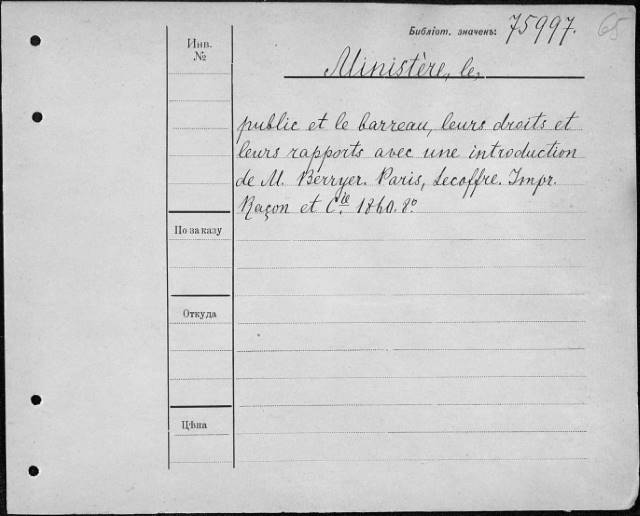 Библіот. значенъ: 75997. 65
Инв. №
Ministère, le,
public et le barreau, leurs droits et
leurs rapports avec une introduction
de M. Berryer. Paris, Lecoffre. Impr.
Raçon et Cie. 1860. 8º.
По заказу
Откуда
Цѣна